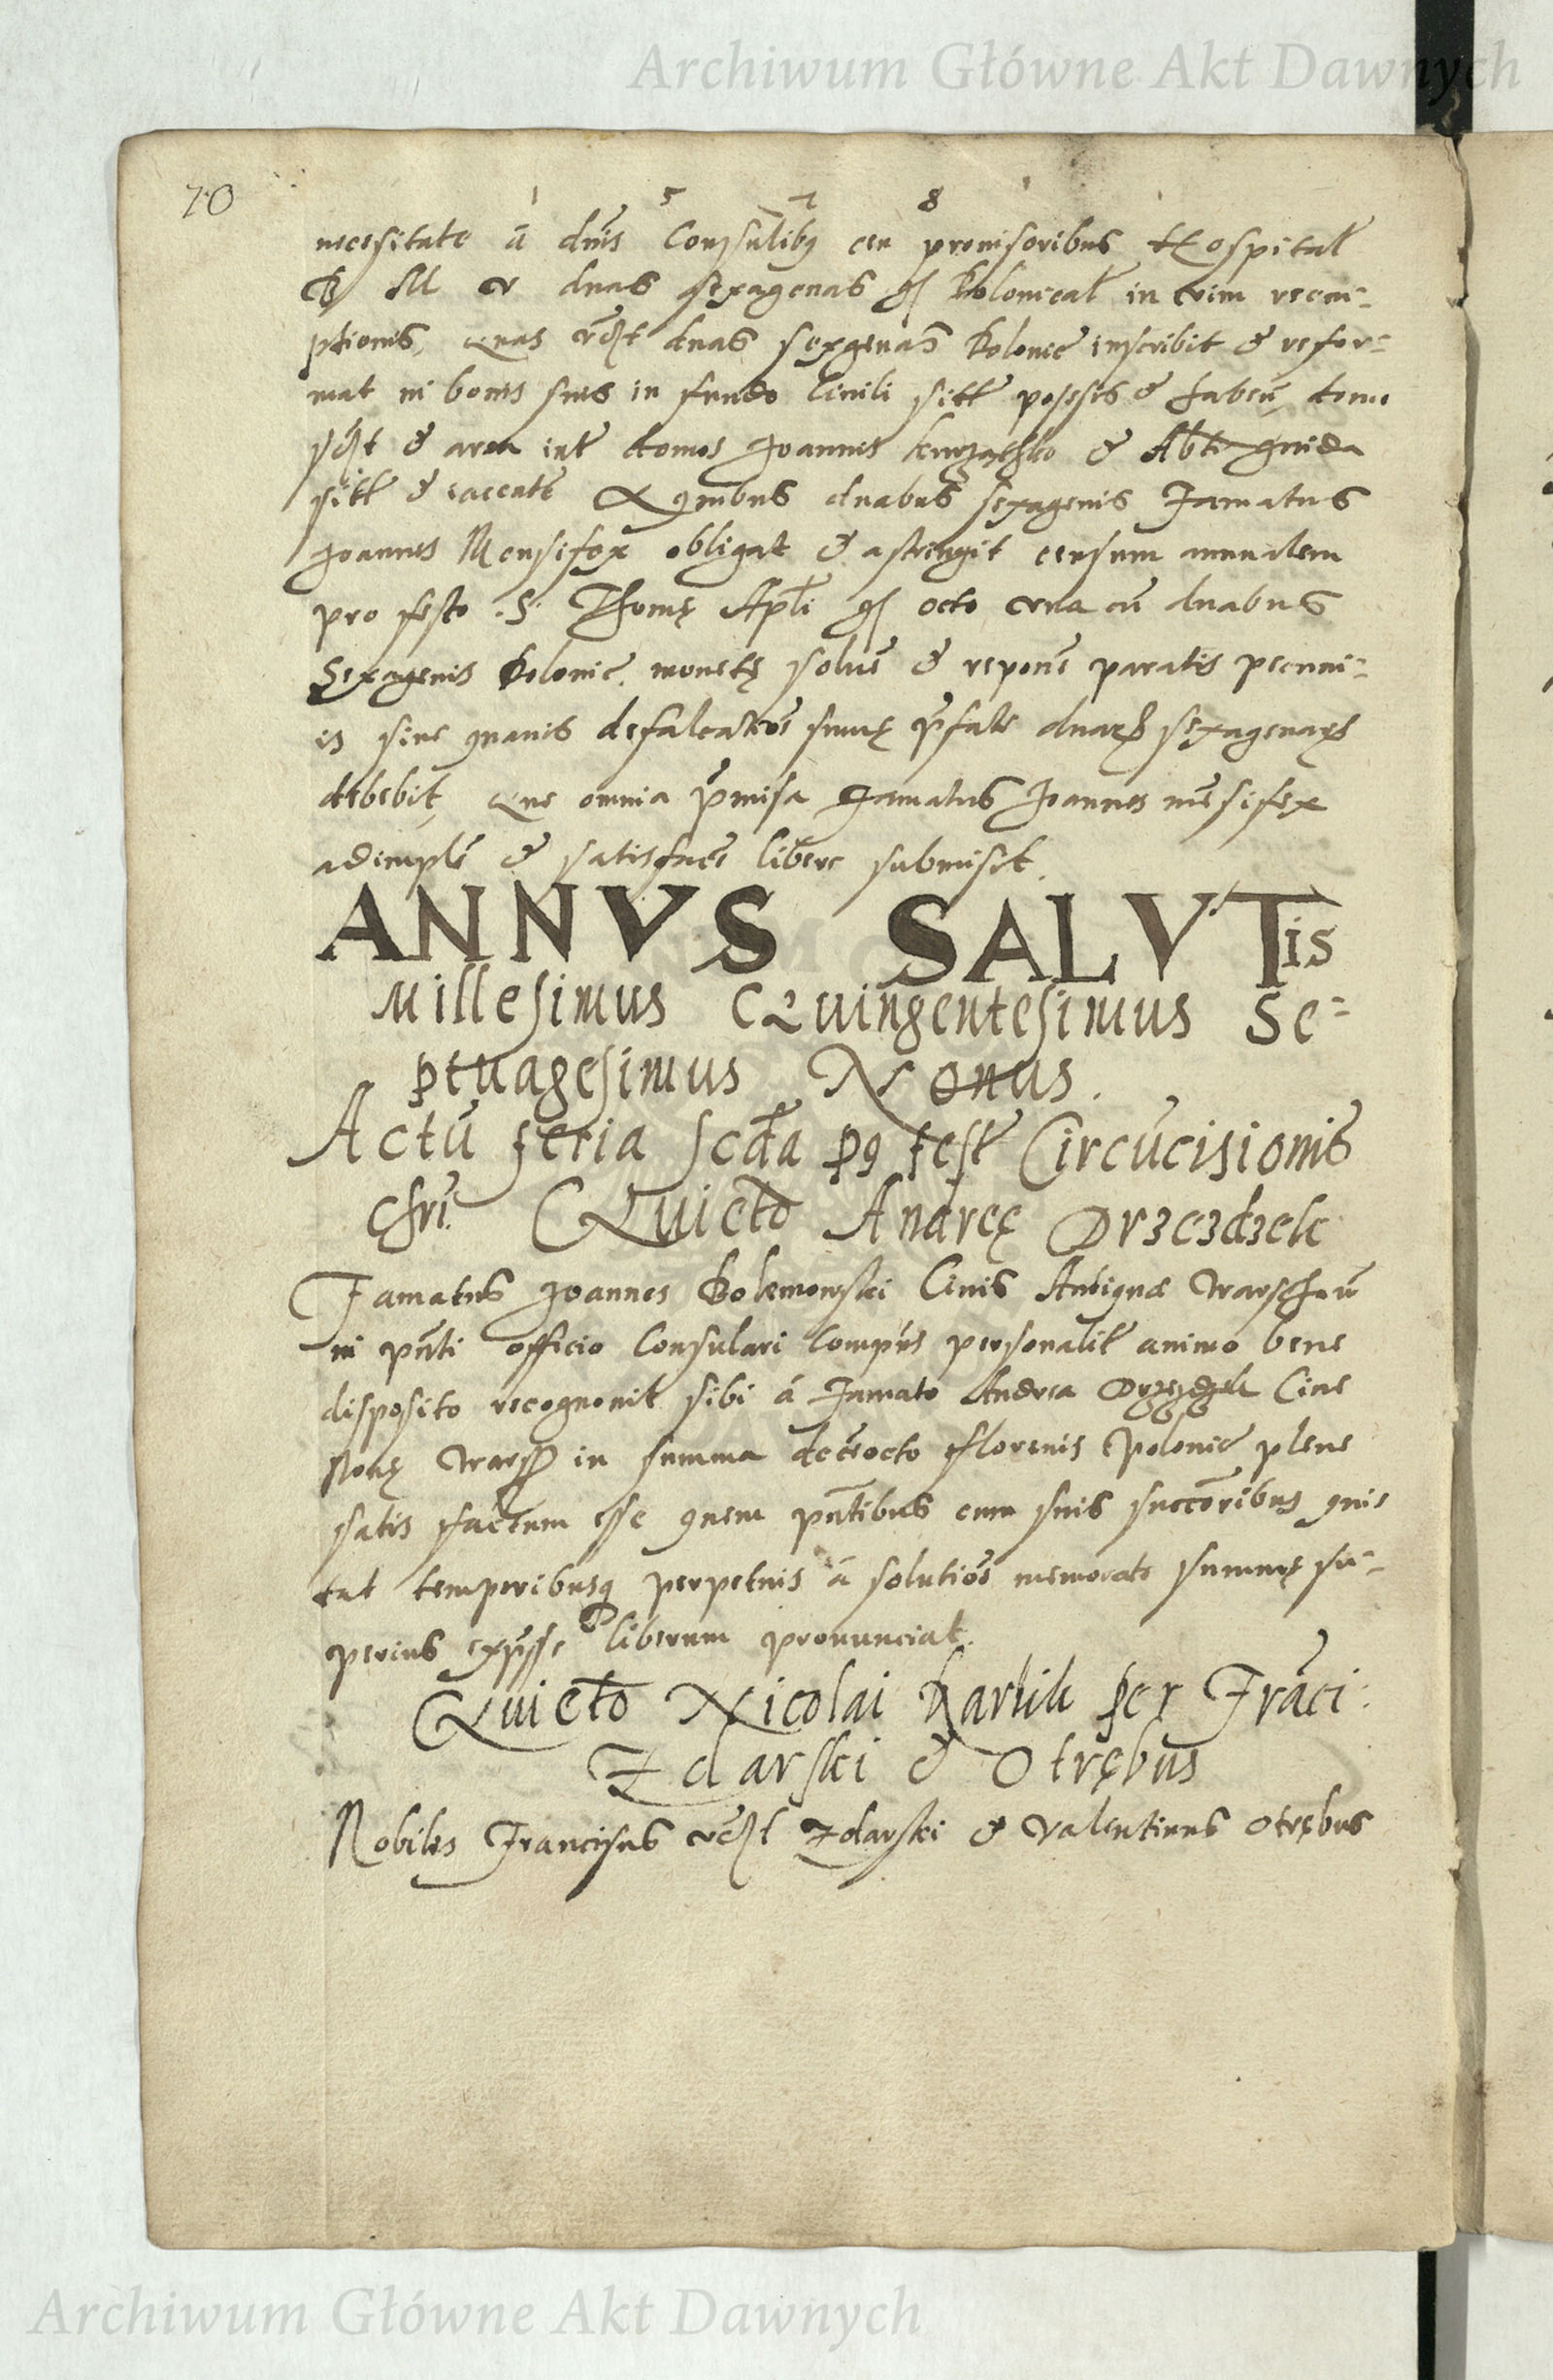 Archiwum Główne Akt Dawnych
70
1 5 7 8
necesitate a dnis Consulibus ceu provisoribus Hospital
B M V duas sexagenas gs Polonical in vim reem-
ptionis, quas duas sexgenas Polonic inscribit & refor-
mat in bonis suis in fundo Civili sitt posesis & habeñ domo
& area int domos Joannis &
sitt & iacente Quibus duabus sexagenis Famatus
Joannes Mensifex obligat & astringit censum annualem
pro festo S. Thomę Apli gs octo una cũ duabus
Sexagenis Polonic monetę solvẽ & reponẽ paratis pecuni-
is sine quavis defalcatiõe sumę pfate duarũ sexagenarũ
debebit, Que omnia pmisa Famatus Joannes mẽsifex
adimplẽ & satisfacẽ libere submisit.
ANNVS SALVTis
Millesimus Qvingentesimus Se-
ptuagesimus Nonus.
Actũ feria scda pq fest Circũcisionis
Chri. Quietõ Andreę Drzezdzek
Famatus Joannes Bolemowski Civis Antiquæ Warschaviẽ
in pñti officio Consulari Compñs personalit animo bene
disposito recognovit sibi a Famato Andrea Drzezdzek Cive
Novę Warsch in summa decẽocto florenis Polonic plene
satis factum esse quem pñtibus cum suis succõribus quie
tat temporibusq perpetuis a solutiõe memorate summę su-
perius expsse liberum pronunciat.
Quietõ Nicolai Karlik per Frãci:
Zdarski & Otrębus
Nobiles Franciscus Zdarski & Valentinus Otrębus
Archiwum Główne Akt Dawnych